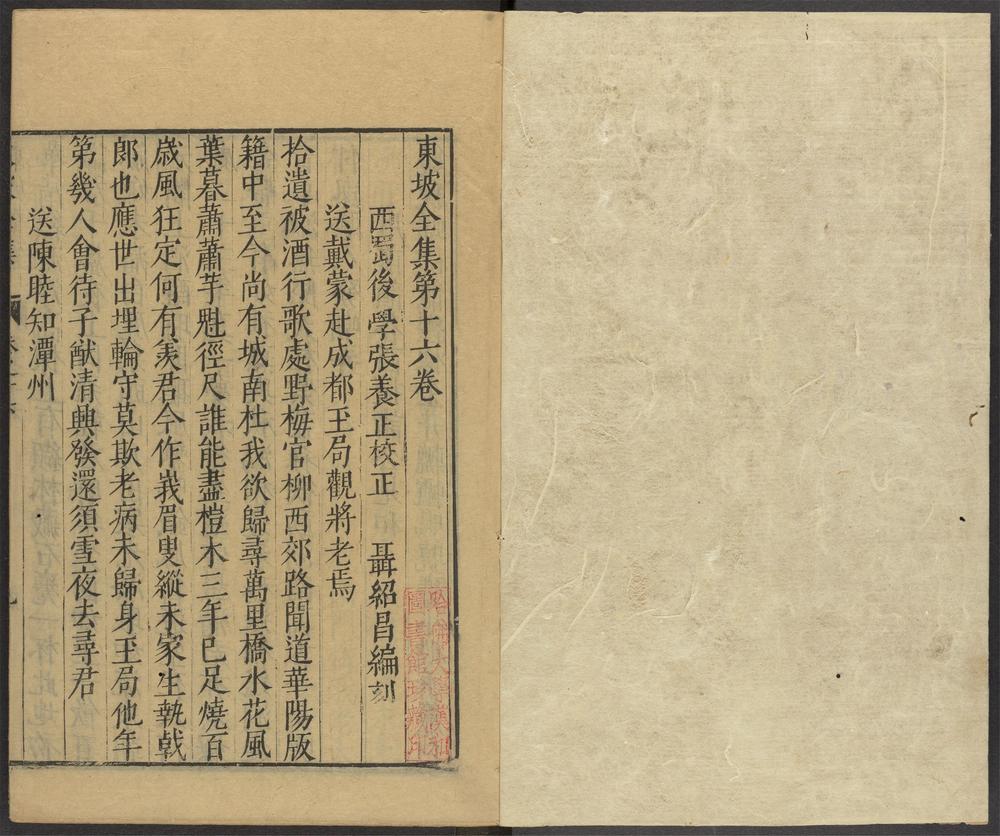 東坡全集第十六卷
西蜀後學張養正校正　聶紹昌編刻
送戴蒙赴成都玉局觀將老焉
拾遺被酒行歌處野梅官柳西郊路聞道華陽版
籍中至今尚有城南杜我欲歸尋萬里橋水花風
葉暮蕭蕭芋魁徑尺誰能盡榿木三年已足燒百
歳風狂定何有羨君今作峩眉叟縱未家生執戟
郎也應世出埋輪守莫欺老病未歸身玉局他年
第幾人會待子猷清興發還須雪夜去尋君
送陳睦知潭州
哈佛大學漢和
圖書館珍藏印